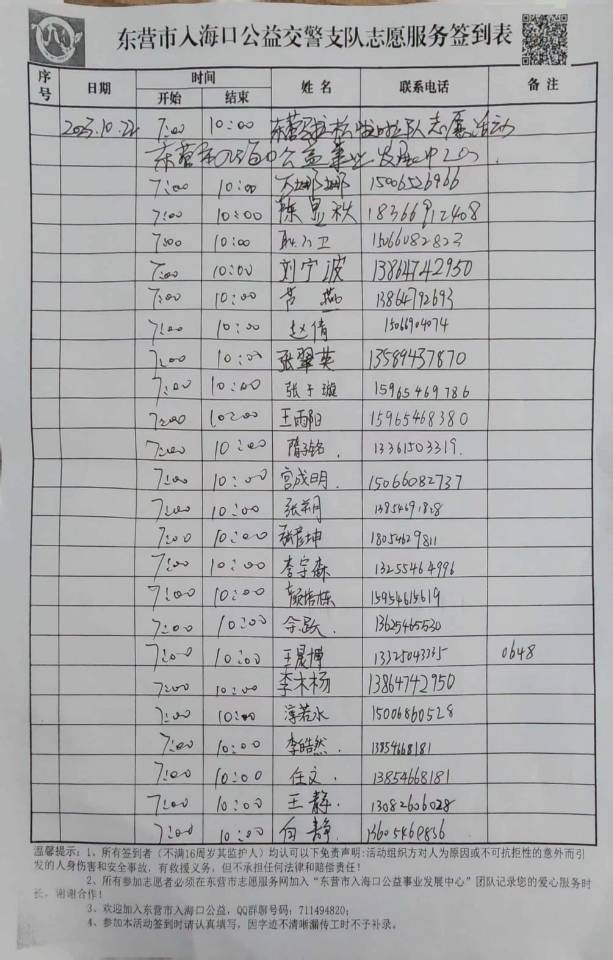 东营市入海口公益交警支队志愿服务签到表
序号 日期 时间 姓名 联系电话 备注
开始 结束
2023.10.22 7:00 10:00 东营 志愿活动
东营市入海口公益事业发展中心
7:00 10:00 娜娜 15006526966
7:00 10:00 陈显秋 18366912408
7:00 10:00 15066082823
7:00 10:00 刘宁波 13864742950
7:00 10:00 燕 13864792693
7:00 10:00 赵倩 15066904074
7:00 10:00 张翠英 13589437870
7:00 10:00 张于璇 15965469786
7:00 10:00 王雨阳 15965468380
7:00 10:00 隋铭 13361503319.
7:00 10:00 宫成明. 15066082737
7:00 10:00 张 13854691828
7:00 10:00 张彦坤 18054629811
7:00 10:00 李宇森 13255464996
7:00 10:00 颜 15954615619
7:00 10:00 13625465530
7:00 10:00 王晨博 13325043335 0648
7:00 10:00 李木杨 13864742950
7:00 10:00 淳若水 15006860528
7:00 10:00 李皓然. 13854668181
7:00 10:00 任文. 13854668181
7:00 10:00 王静. 13082606028
7:00 10:00 向静. 13605469836
温馨提示: 1、所有签到者（不满16周岁其监护人）均认可以下免责声明:活动组织方对人为原因或不可抗拒性的意外而引
发的人身伤害和安全事故，有救援义务，但不承担任何法律和赔偿责任！
2、所有参加志愿者必须在东营市志愿服务网加入“东营市入海口公益事业发展中心”团队记录您的爱心服务时
长，谢谢合作！
3、欢迎加入东营市入海口公益，QQ群聊号码: 711494820;
4、参加本活动签到时请认真填写，因字迹不清晰漏传工时不予补录。